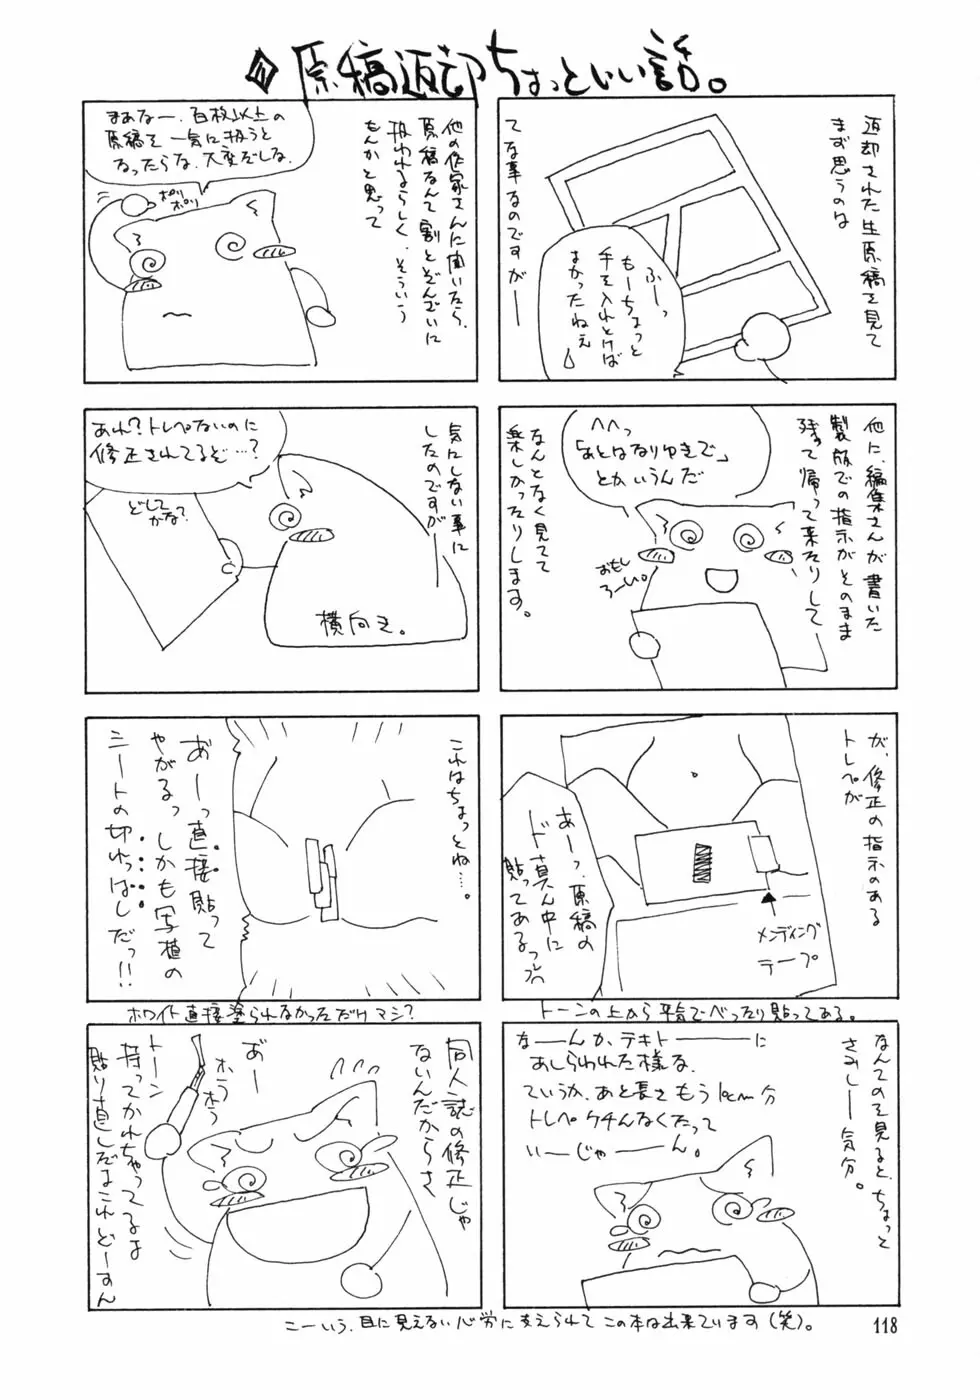 原稿返却ちょっといい話。
返却された生原稿を見て
まず思うのは
ふーっ
もーちょっと
手を入れとけば
よかったねえ
てな事なのですが――
他に、編集さんが書いた
製版での指示がそのまま
残って帰って来たりして――
へへっ
「あとはなりゆきで」
とかいうんだ
おもし
ろーい。
なんとなく見てて
楽しかったりします。
が、修正の指示のある
トレペが
あーっ、原稿の
ド真ん中に
貼ってあるっ
メンディング
テープ
トーンの上から平気でべったり貼ってある。
なんてのを見ると、ちょっと
さみしー気分。
なーんか、テキトーーーに
あしらわれた様な、
ていうか、あと長さもう1cm分
トレペケチんなくたって
いーじゃーーん。
他の作家さんに聞いたら、
原稿なんて割とぞんざいに
扱われるらしく、そういう
もんかと思って
まあなー、百枚以上の
原稿を一気に扱うと
なったらな、大変だしな、
ポリ
ポリ
気にしない事に
したのですが――
あれ？トレペないのに
修正されてるぞ…？
どして
かな？
横向き。
これはちょっとね…。
あ゛ーっ直接貼って
やがるっしかも写植の
シートの切れっぱしだっ!!
ホワイト直接塗られなかっただけマシ？
同人誌の修正じゃ
ないんだからさ
あ゛ー
ホラ
ホラ
トーン
持ってかれちゃってるよ
貼り直しだよこれどーすん
こーいう、目に見えない心労に支えられてこの本は出来ています（笑）。
118